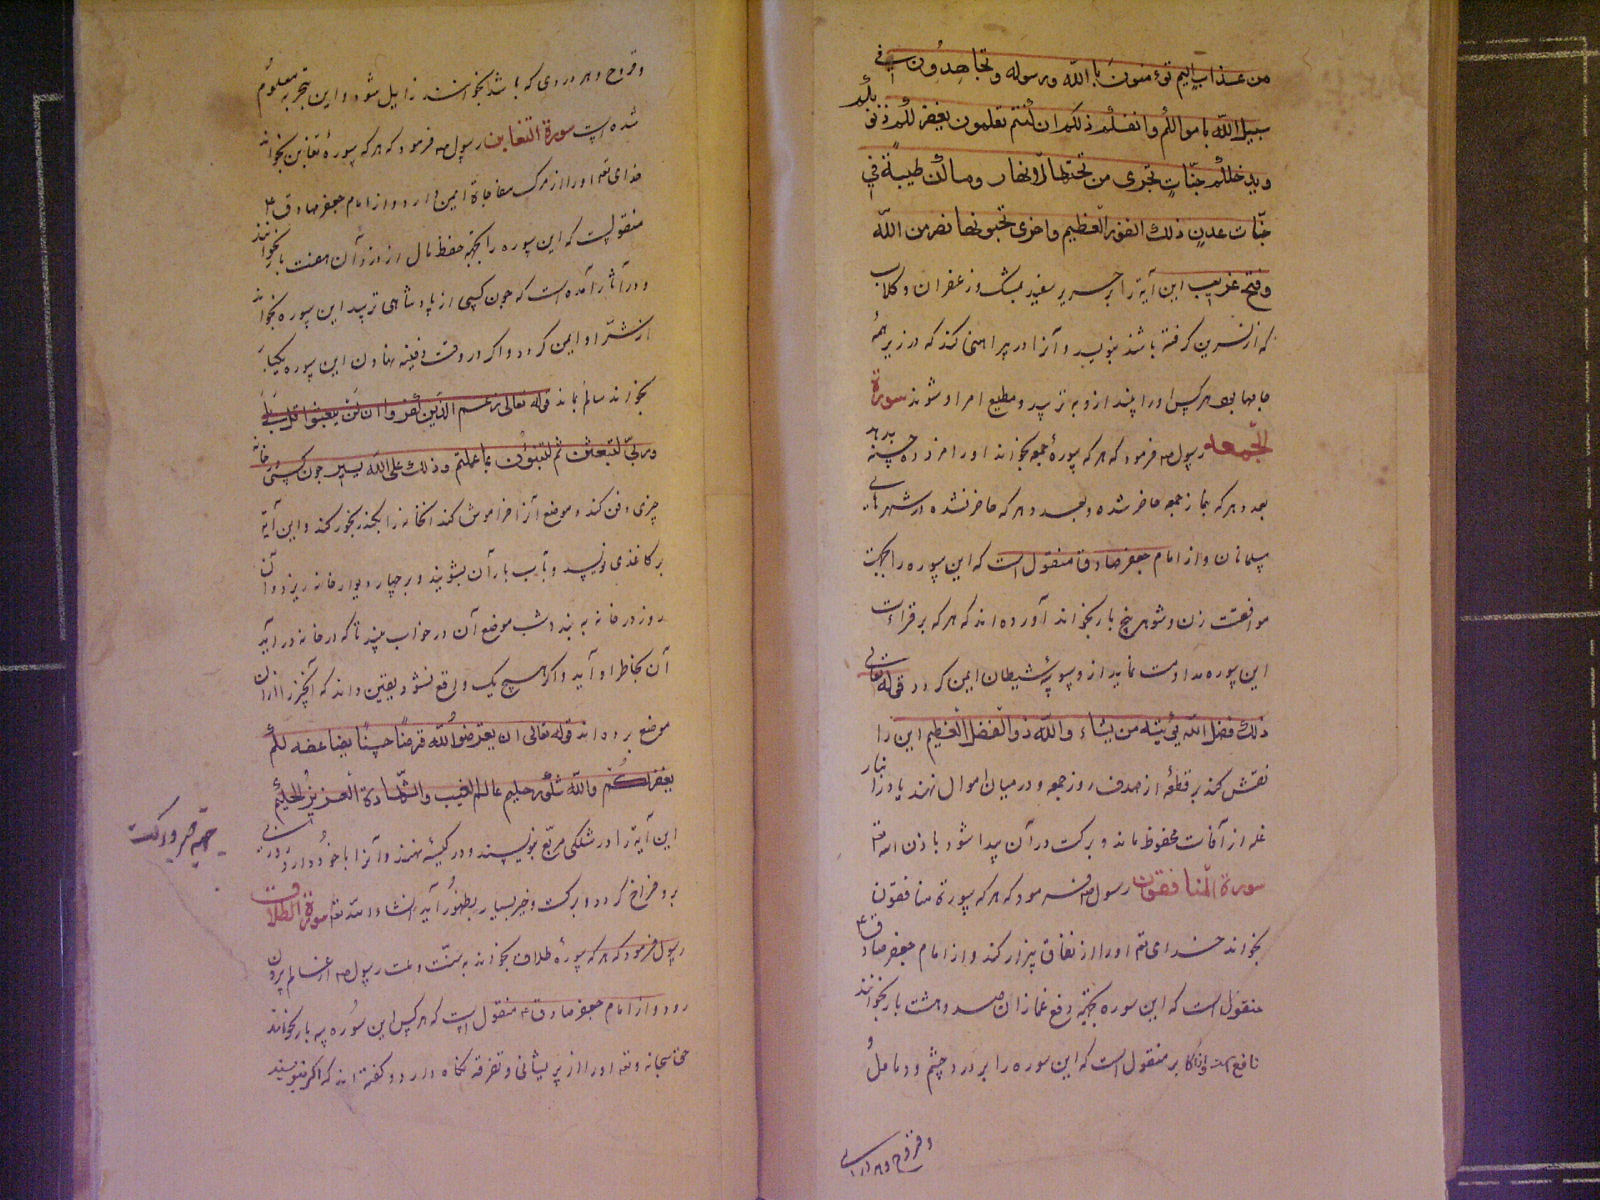 من عذاب اليم تؤمنون بالله ورسوله وتجاهدون في
سبيل الله باموالكم وانفسكم ذلكم ان كنتم تعلمون يغفر لكم ذنوبكم
ويدخلكم جنّات تجرى من تحتها الانهار ومساكن طيبة في
جنّات عدن ذلك الفوز العظيم واخرى تحبونها نصر من الله
وفتح قريب این آیة را بر حریر سفید بمشک و زعفران و کلاب
که از نسرین کرفته باشند بنویسد و آنرا در پیراهنی کند که در زیر همهٔ
جامها بود هر کس او را بیند ازو بترسد و مطیع امر او شوند سورة
الجمعه رسول صه فرمود که هر که سورهٔ جمعه بخواند او را مزد ده حسنه بدهد
بعدد هر که بنماز جمعه حاضر شده و بعدد هر که حاضر نشده در شهرهای
مسلمانان و از امام جعفر صادق منقول است که این سوره را بجهت
موافقت زن و شوهر پنج بار بخواند آورده اند که هر که بر قراءت
این سوره مداومت نماید از وسوسهٔ شیطان ایمن کردد قوله تعالی
ذلك فضل الله يؤتيه من يشاء والله ذو الفضل العظيم این را
نقش کند بر قطعهٔ از صدف روز جمعه و در میان اموال نهند یا در انبار
غله از آفات محفوظ ماند و برکت در آن پیدا شود باذن الله تع
سورة المنافقون رسول صه فرمود که هر که سورة منافقون
بخواند خدای تع او را از نفاق بیزار کند و از امام جعفر صادق ع
منقول است که این سوره بجهة دفع غمازان صد و هشت بار بخوانند
نافع است و از اکابر منقول است که این سوره را بر درد چشم و دمامل
و قروح و هر دردی
و قروح و هر دردی که باشد بخوانند زایل شود و این بتجربه معلوم
شده است سورة التغابن رسول صه فرمود که هر که سورهٔ تغابن بخواند
خدای تع او را از مرک مفاجاة ایمن دارد و از امام جعفر صادق ع
منقولست که این سوره را بجهة حفظ مال از دزد آن هفت بار بخوانند
و در آثار آمده است که چون کسی از پادشاهی ترسد این سوره بخواند
از شرّ او ایمن کردد و اکر در وقت دفینه نهادن این سوره یکبار
بخواند سالم بماند قوله تعالی زعم الذين كفروا ان لن يبعثوا قل بلى
وربّي لتبعثن ثم لتنبؤن بما عملتم وذلك على الله يسير چون کسی در خانه
چیزی دفن کند و موضع آنرا فراموش کند انخانه را بکندر بخور کند و این آیة
بر کاغذی نویسد و بآب باران بشویند و بر چهار دیوار خانه ریزد و آن
روز در خانه به بندد شب موضع آن در خواب بیند تا که در خانه در آید
آن بخاطر او آید و اکر هیچ یک واقع نشود یقین داند که آنچیز را از آن
موضع برده اند قوله تعالی ان تقرضوا الله قرضا حسنًا يضاعفه لكم
يغفر لكم والله شكور حليم عالم الغيب والشهادة العزيز الحكيم
این آیة را در شکلی مربّع بنویسند و در کیسهٔ نهند و آنرا با خود دارد روزی
برو فراخ کردد و برکت و خیر بسیار بظهور آید انشاء الله تع سورة الطلاق
رسول فرمود که هر که سورهٔ طلاق بخواند به سنّت و ملت رسول صه از عالم بیرون
رود و از امام جعفر صادق ع منقول است که هر کس این سوره سه بار بخواند
حق سبحانه و تع او را از پریشانی و تفرقه نکاه دارد و کفته اند که اکر بنویسند